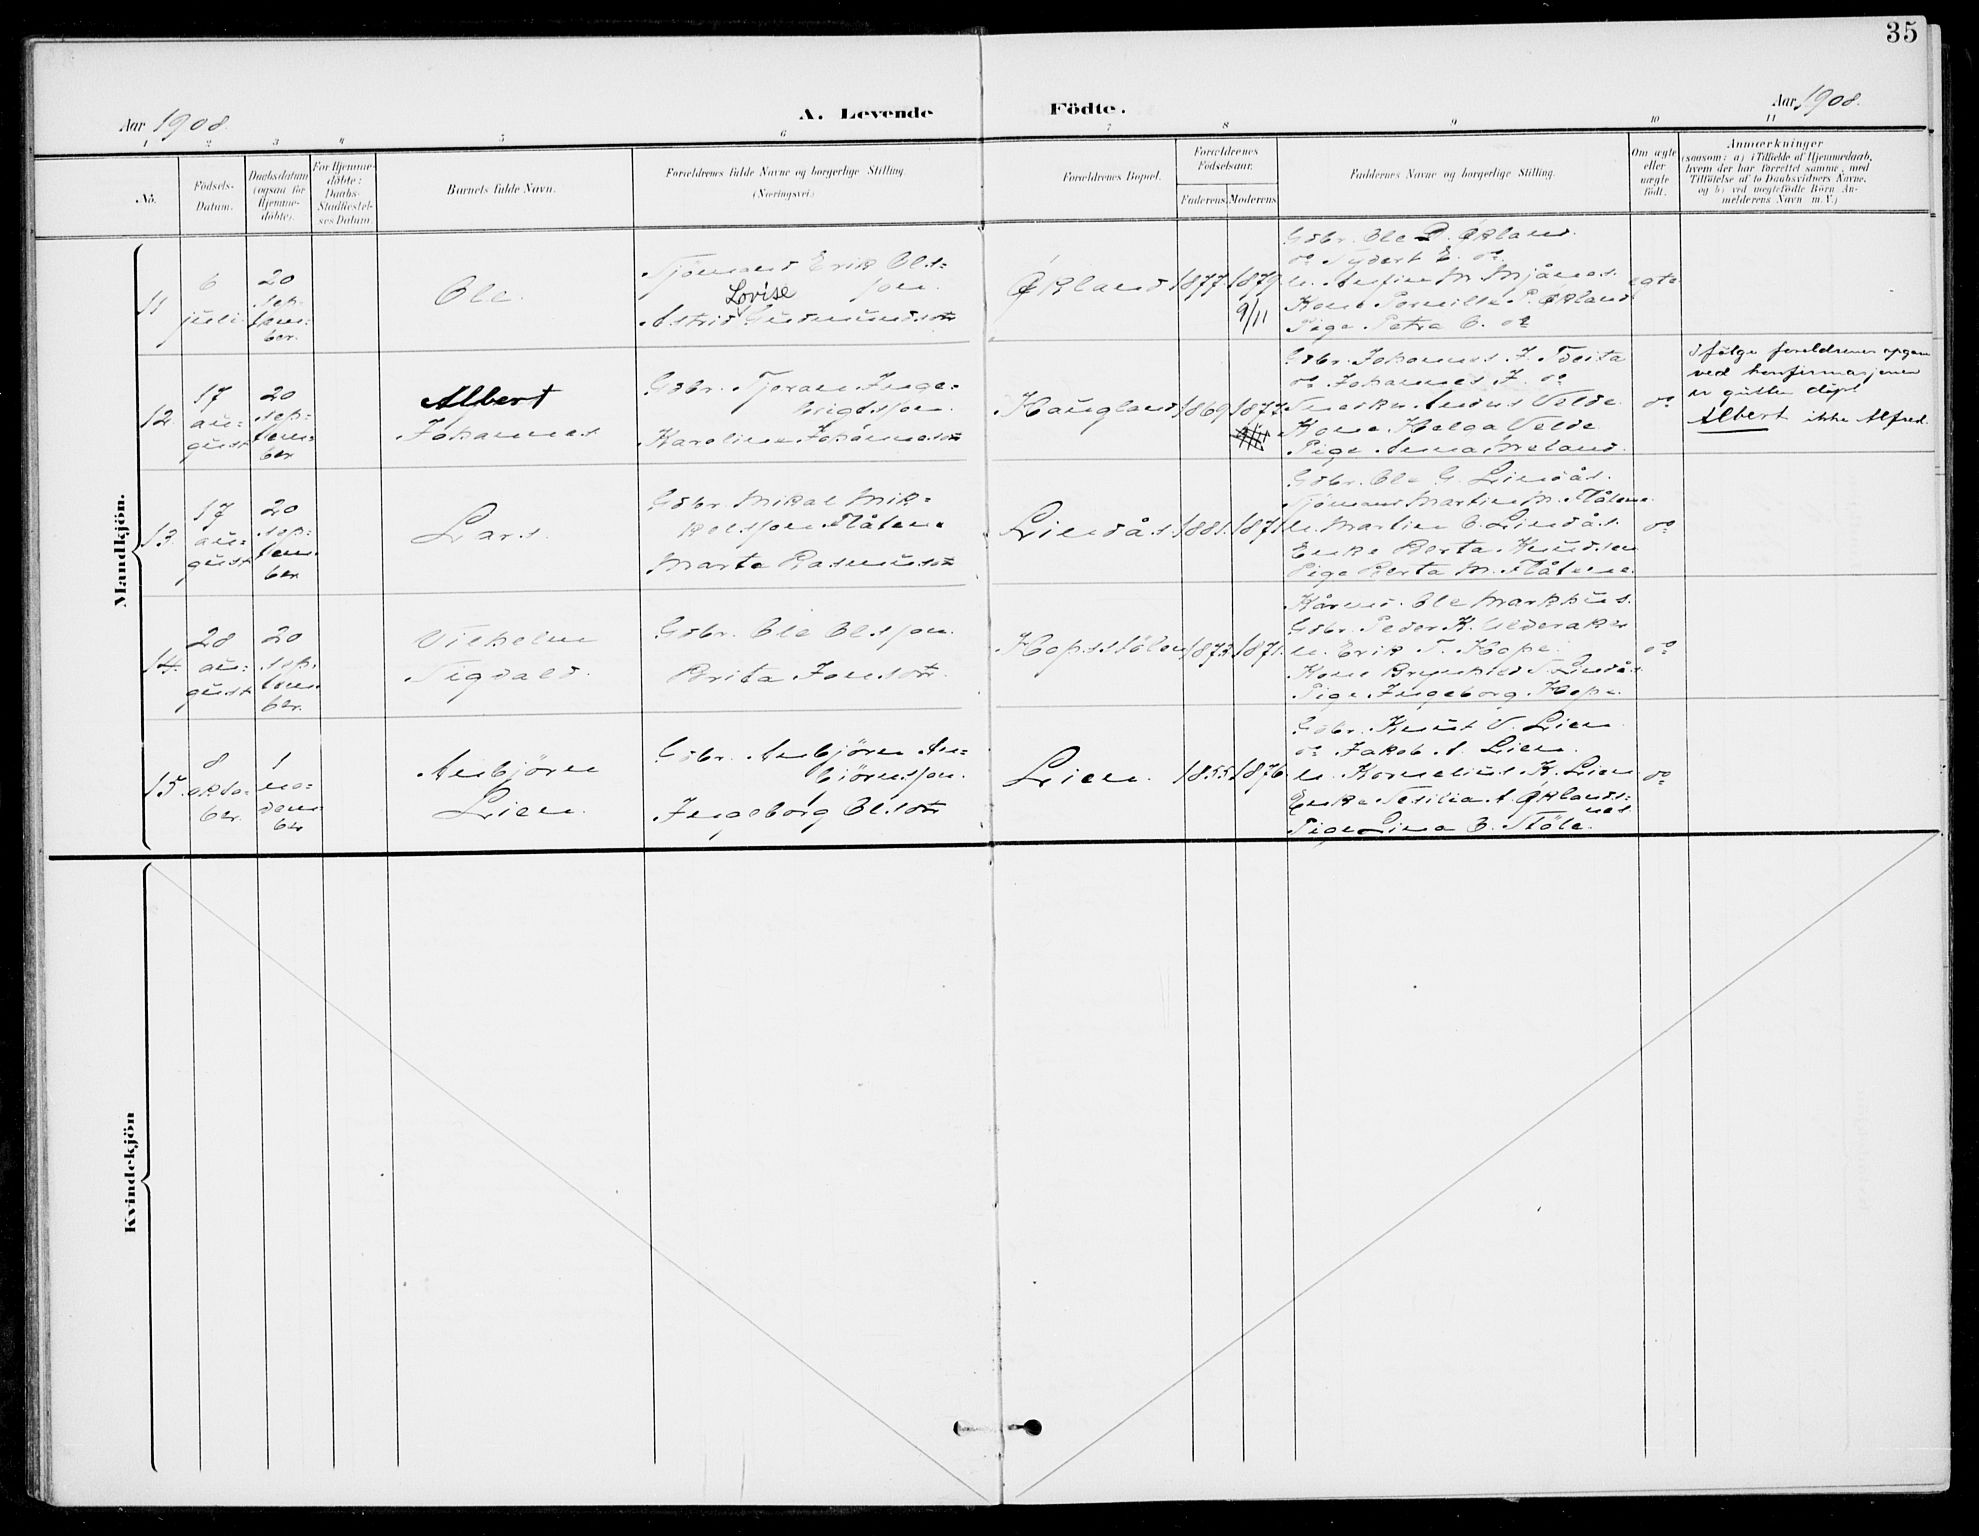 35
Aar 1908.
A. Levende
Födte.
Aar 1908.
1 2 3 4 5 6 7 8 9 10 11
No.
Födsels-
Datum.
Daabsdatum
(ogsaa for
Hjemme-
döbte).
For Hjemme-
döbte:
Daabs-
Stadfæstel-
ses Datum.
Barnets fulde Navn.
Forældrenes fulde Navne og borgerlige Stilling.
(Næringsvei.)
Forældrenes Bopæl.
Forældrenes
Födselsaar.
Faderens. Moderens.
Faddernes Navne og borgerlige Stilling.
Om ægte
eller
uægte
födt.
Anmærkninger
(saasom: a) i Tilfælde af Hjemmedaab,
hvem der har forrettet samme, med
Tilföielse af to Daabsvidners Navne,
og b) ved uægtefödte Börn An-
melderens Navn m. V.)
Mandkjön.
11
6
juli
20
sep-
tem-
ber.
Ole.
Erik Ols-
son.
Lovise
Astrid Gudmundsdtr
Økland
1877
1879
9/11
Gdbr. Ole P. Økland.
Kone Pernille P. Økland
Pige Petra O. do
egte
12.
17
au-
gust
20
sep-
tem-
ber
Albert
Johannes
Gdbr. Inge-
brigtsson.
Karoline Johannesdtr
Haugland
1869
1877
Gdbr. Johannes J. Tveita
do Johannes J. do
Velde
Kone Helga Velde
Pige Anna
do
Ifølge foreldrenes opgave
ved konfirmasjonen
er gutten døpt
Albert ikke Alfred.
13.
17
au-
gust
20
sep-
tem-
ber
Lars.
Gdbr. Mikal Mik-
kelsson Flåten.
Marta Rasmusdtr
Lindås.
1881.
1871.
Gdbr. Ole G. Lindås.
Martin M. Flåten.
u. Martin O. Lindås.
Enke Berta Knudsen
Pige Berta M. Flåten.
do
14.
28
au-
gust
20
sep-
tem-
ber.
Vilhelm
Sigvald.
Gdbr. Ole Olsson.
Brita Jonsdtr.
Hopsstölen
1873.
1871.
Kårmd. Ole Markhus.
Gdbr. Peder K.
u. Erik T. Hope.
Kone Brynhild Lindås.
Pige Ingeborg Hope.
do
15.
8
okto-
ber.
1
no-
vem-
ber
Anbjörn
Lien.
Gdbr. Anbjörn An-
björnsson.
Ingeborg Olsdtr
Lien.
1855.
1876.
Gdbr. Knut V. Lien.
do Jakob A. Lien.
u. Kornelius K. Lien
Enke Sesilia A. Øklands-
nes
Pige Lina O. Støle.
do
Kvindekjön